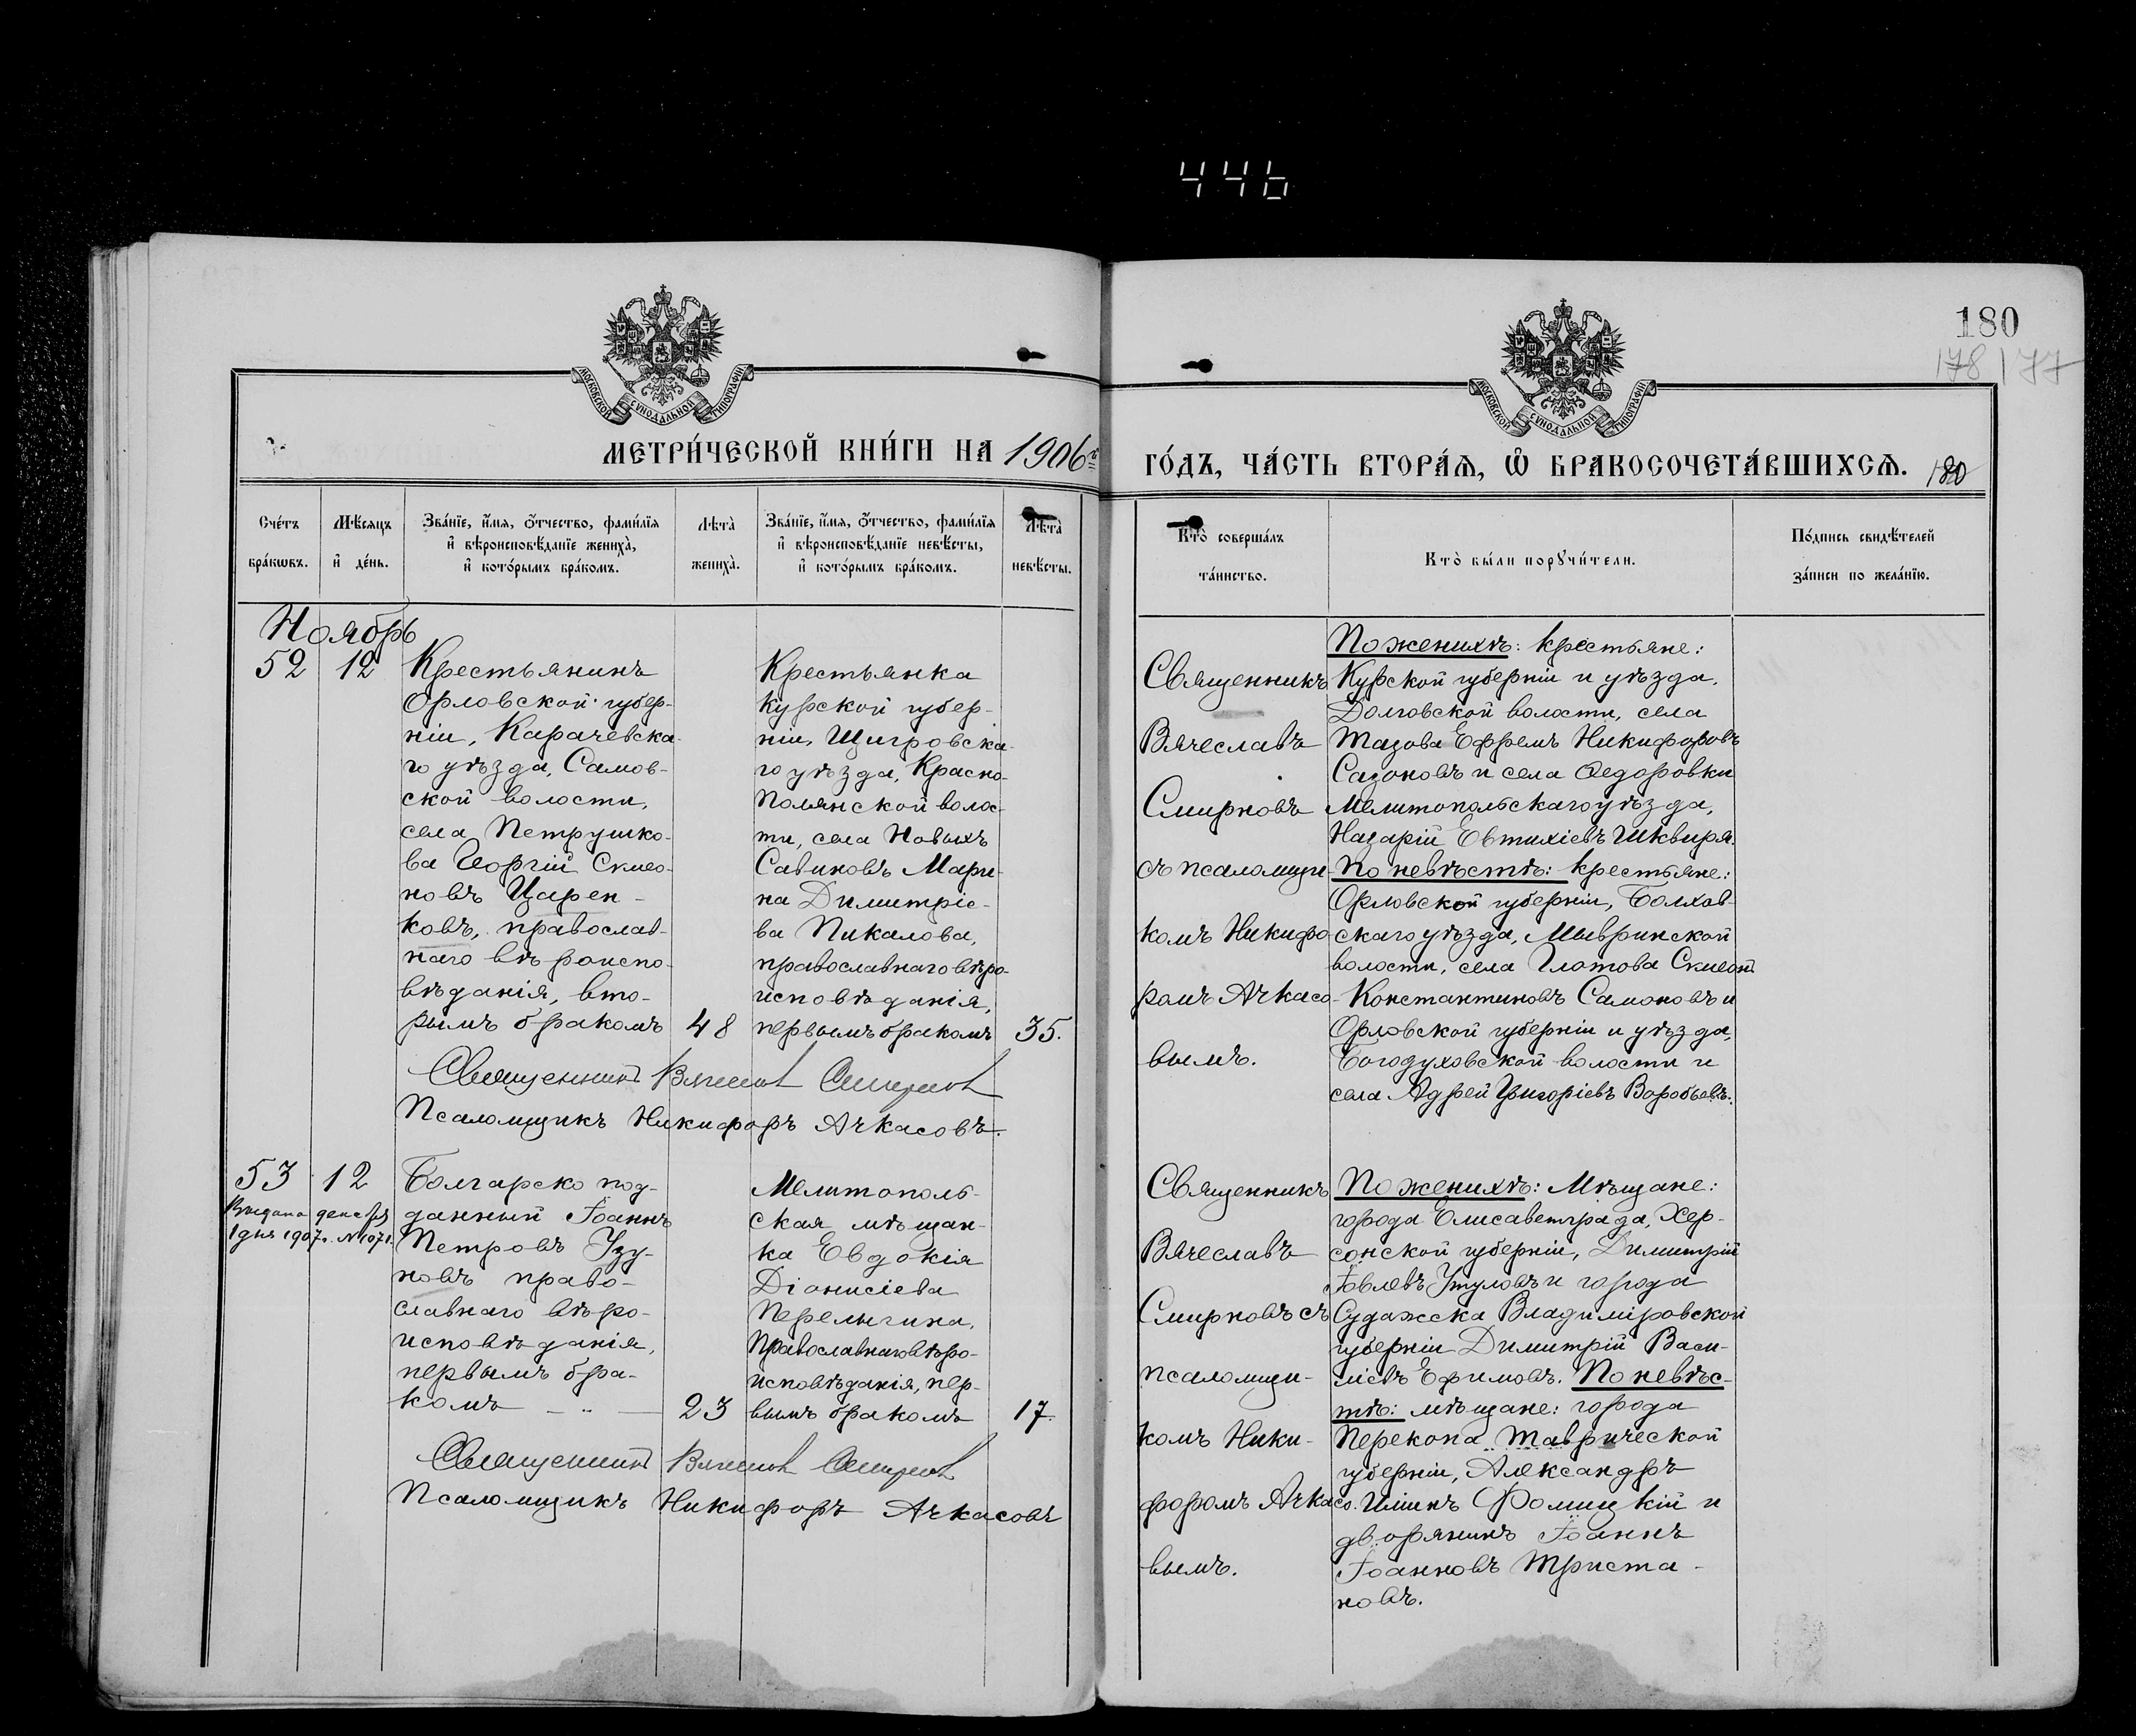 446
180
178 177
МОСКОВСКОЙ СУНОДАЛЬНОЙ ТИПОГРАФІИ
МОСКОВСКОЙ СУНОДАЛЬНОЙ ТИПОГРАФІИ
МЕТРИ́ЧЕСКОЙ КНИ́ГИ НА 1906 г.
ГО́ДЪ, ЧА́СТЬ ВТОРА́Ѧ, Ѽ БРАКОСОЧЕТА́ВШИХСѦ. 180
Сче́тъ бра́кѡвъ.
Мѣ́сяцъ и҆ де́нь.
Зва́нїе, и҆́мя, ѻ҆́тчество, фами́лїя
и҆ вѣроисповѣ́данїе жениха̀,
и҆ кото́рымъ бра́комъ.
Лѣта̀ жениха̀.
Зва́нїе, и҆́мя, ѻ҆́тчество, фами́лїя
и҆ вѣроисповѣ́данїе невѣ́сты,
и҆ кото́рымъ бра́комъ.
Лѣта̀ невѣ́сты.
Кто̀ соверша́лъ та́инство.
Кто̀ бы́ли порꙋчи́тели.
По́дпись свидѣ́телей
за́писи по жела́нїю.
Ноябрь
52 12
Крестьянинъ
Орловской губер-
ніи, Карачевска-
го уѣзда, Самов-
ской волости,
села Петрушко-
ва Георгій Симео-
новъ Царен-
ковъ, православ-
наго вѣроиспо-
вѣданія, вто-
рымъ бракомъ 48
Крестьянка
Курской губер-
ніи, Щигровска-
го уѣзда, Красно-
полянской волос-
ти, села Новыхъ
Савиновъ Мари-
на Димитріе-
ва Пикалова,
православнаго вѣро-
исповѣданія,
первымъ бракомъ 35.
Священникъ Вячеславъ Смирновъ
Псаломщикъ Никифоръ Ачкасовъ.
Священникъ
Вячеславъ
Смирновъ
съ псаломщи-
комъ Никифо-
ромъ Ачкасо-
вымъ.
По женихѣ: крестьяне:
Курской губерніи и уѣзда,
Долговской волости, села
Тазова Ефремъ Никифоровъ
Сазоновъ и села Ѳедоровки
Мелитопольскаго уѣзда,
Назарій Евтихіевъ Шквиря.
По невѣстѣ: крестьяне:
Орловской губерніи, Болхов-
скаго уѣзда, Мывринской
волости, села Глотова Симеонъ
Константиновъ Самоновъ и
Орловской губерніи и уѣзда,
Богодуховской волости и
села Адрей Григоріевъ Воробьевъ.
53 12
Выдана декабря
1 дня 1907 г. № 1071.
Болгарско под-
данный Іоаннъ
Петровъ Узу-
новъ право-
славнаго вѣро-
исповѣданія,
первымъ бра-
комъ — " — 23
Мелитополь-
ская мѣщан-
ка Евдокія
Діонисіева
Перелыгина,
Православнаго вѣро-
исповѣданія, пер-
вымъ бракомъ 17.
Священникъ Вячеславъ Смирновъ
Псаломщикъ Никифоръ Ачкасовъ
Священникъ
Вячеславъ
Смирновъ съ
псаломщи-
комъ Ники-
форомъ Ачкасо-
вымъ.
По женихѣ: Мѣщане:
города Елисаветграда, Хер-
сонской губерніи, Димитрій
Іовлевъ Утуловъ и города
Судажска Владиміровской
губерніи Димитрій Васи-
ліевъ Ефимовъ. По невѣс-
тѣ: мѣщане: города
Перекопа Таврической
губерніи, Александръ
Иліинъ Фомицкій и
дворянинъ Іоаннъ
Іоанновъ Триста-
новъ.